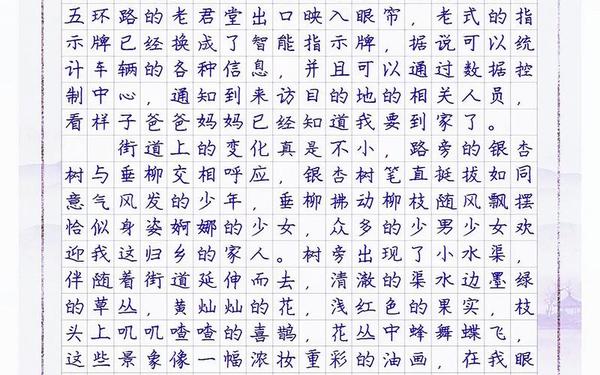 五环路的老君堂出口映入眼帘，老式的指
示牌已经换成了智能指示牌，据说可以统
计车辆的各种信息，并且可以通过数据控
制中心，通知到来访目的地的相关人员，
看样子爸爸妈妈已经知道我要到家了。
街道上的变化真是不小，路旁的银杏
树与垂柳交相呼应，银杏树笔直挺拔如同
意气风发的少年，垂柳拂动柳枝随风飘摆
恰似身姿婀娜的少女，众多的少男少女欢
迎我这归乡的家人。树旁出现了小水渠，
伴随着街道延伸而去，清澈的渠水边墨绿
的草丛，黄灿灿的花，浅红色的果实，枝
头上叽叽喳喳的喜鹊，花丛中蜂舞蝶飞，
这些景象像一幅浓妆重彩的油画，在我眼